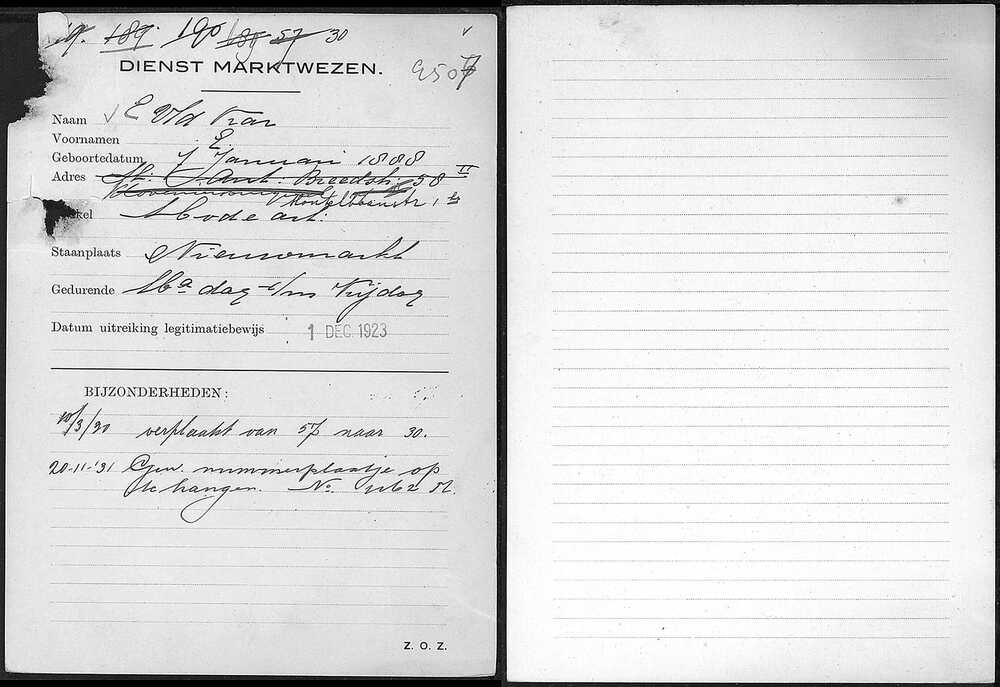 19. 189. 190 189 57 30
DIENST MARKTWEZEN.
950
Naam E Vld Kar
Voornamen E
Geboortedatum 7 Januari 1888
Adres St. Ant. Breedstr. 58 II
Montelbaanstr 1 hs
kel Mode art.
Staanplaats Nieuwmarkt
Gedurende Maandag t/m Vrijdag
Datum uitreiking legitimatiebewijs 1 DEC. 1923
BIJZONDERHEDEN:
10/3/30 verplaatst van 57 naar 30.
20-11-'31 Gew. nummerplaatje op
te hangen. No.
Z. O. Z.